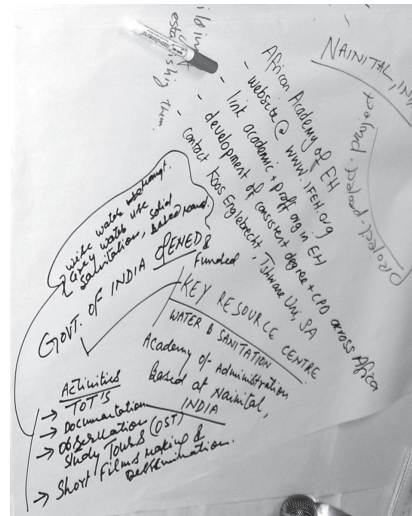 ild in
establishing them.
NAINITAL, IN
project project. project
African Academy of EH
- website @ www.IFEH.org
- link academic + proff org in EH
- development of consistent degree + CPD across Africa
- contact Koos Englebrecht, Tshwane Uni, SA
grey water use
sanitation, solid
GOVT. OF INDIA OPENED &
Funded
KEY RESOURCE CENTRE
WATER & SANITATION
Academy of Administration
Based at Nainital,
INDIA
Activities
→ TOT'S
→ Documentation
→ Observation (OST)
Study Tours
→ Short Films making &
Dissemination.